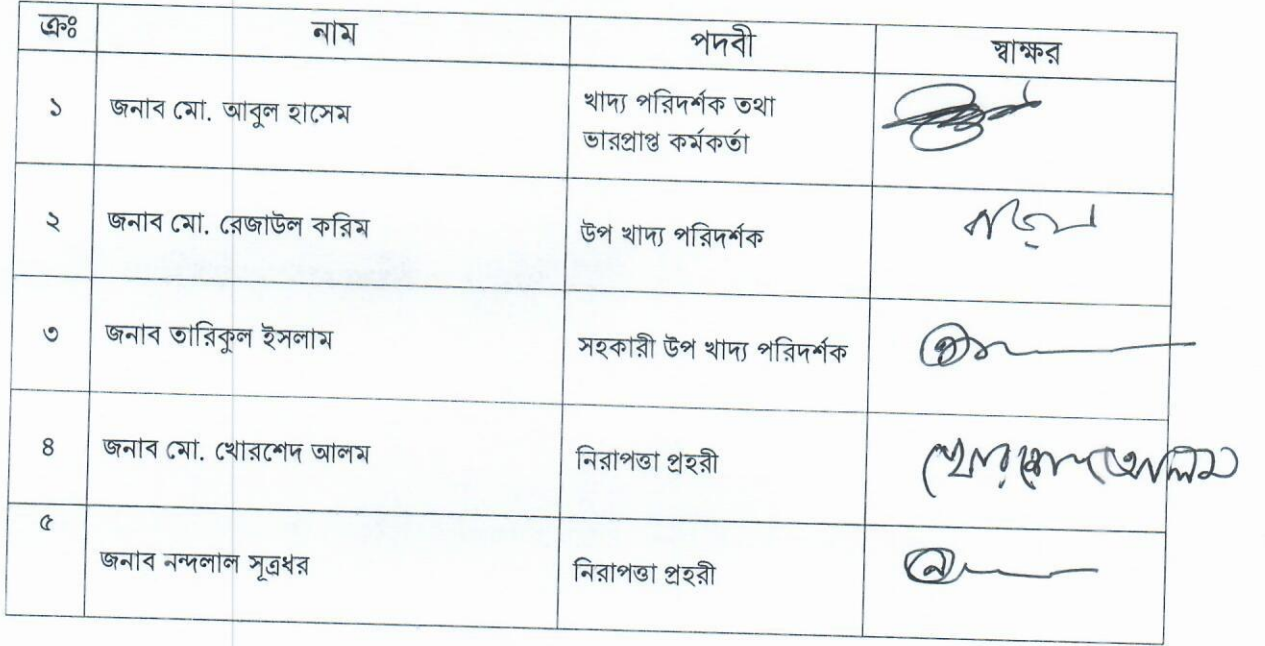 ক্রঃ নাম পদবী স্বাক্ষর
১ জনাব মো. আবুল হাসেম খাদ্য পরিদর্শক তথা
ভারপ্রাপ্ত কর্মকর্তা
২ জনাব মো. রেজাউল করিম উপ খাদ্য পরিদর্শক
৩ জনাব তারিকুল ইসলাম সহকারী উপ খাদ্য পরিদর্শক
৪ জনাব মো. খোরশেদ আলম নিরাপত্তা প্রহরী খোরশেদ আলম
৫ জনাব নন্দলাল সূত্রধর নিরাপত্তা প্রহরী